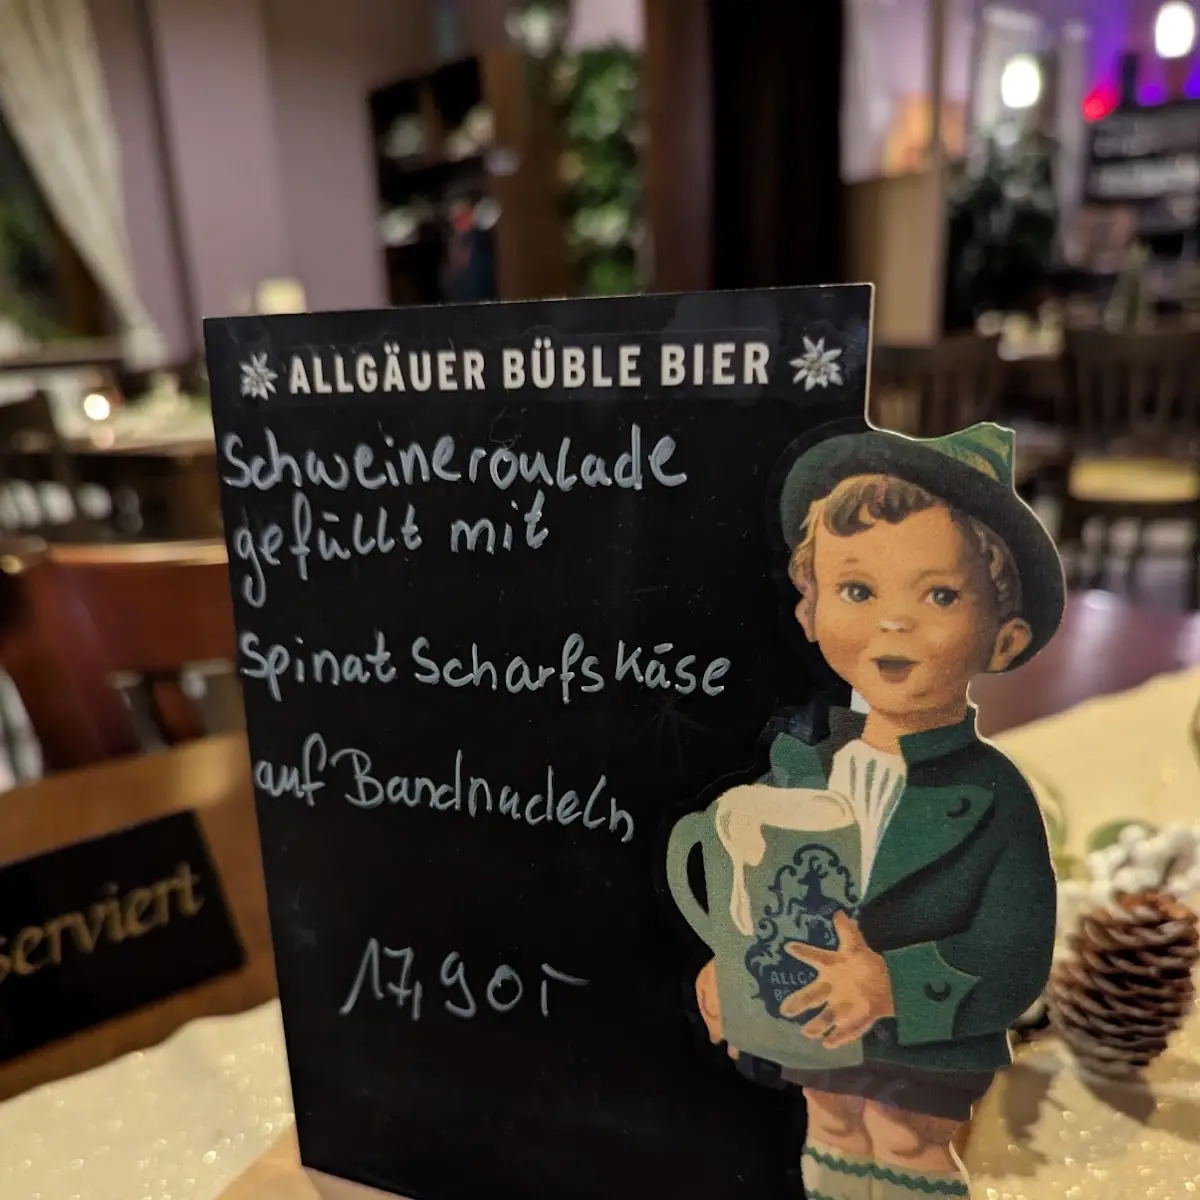 ALLGÄUER BÜBLE BIER
Schweineroulade
gefüllt mit
Spinat Scharfskäse
auf Bandnudeln
17,90,-
serviert
ALLG